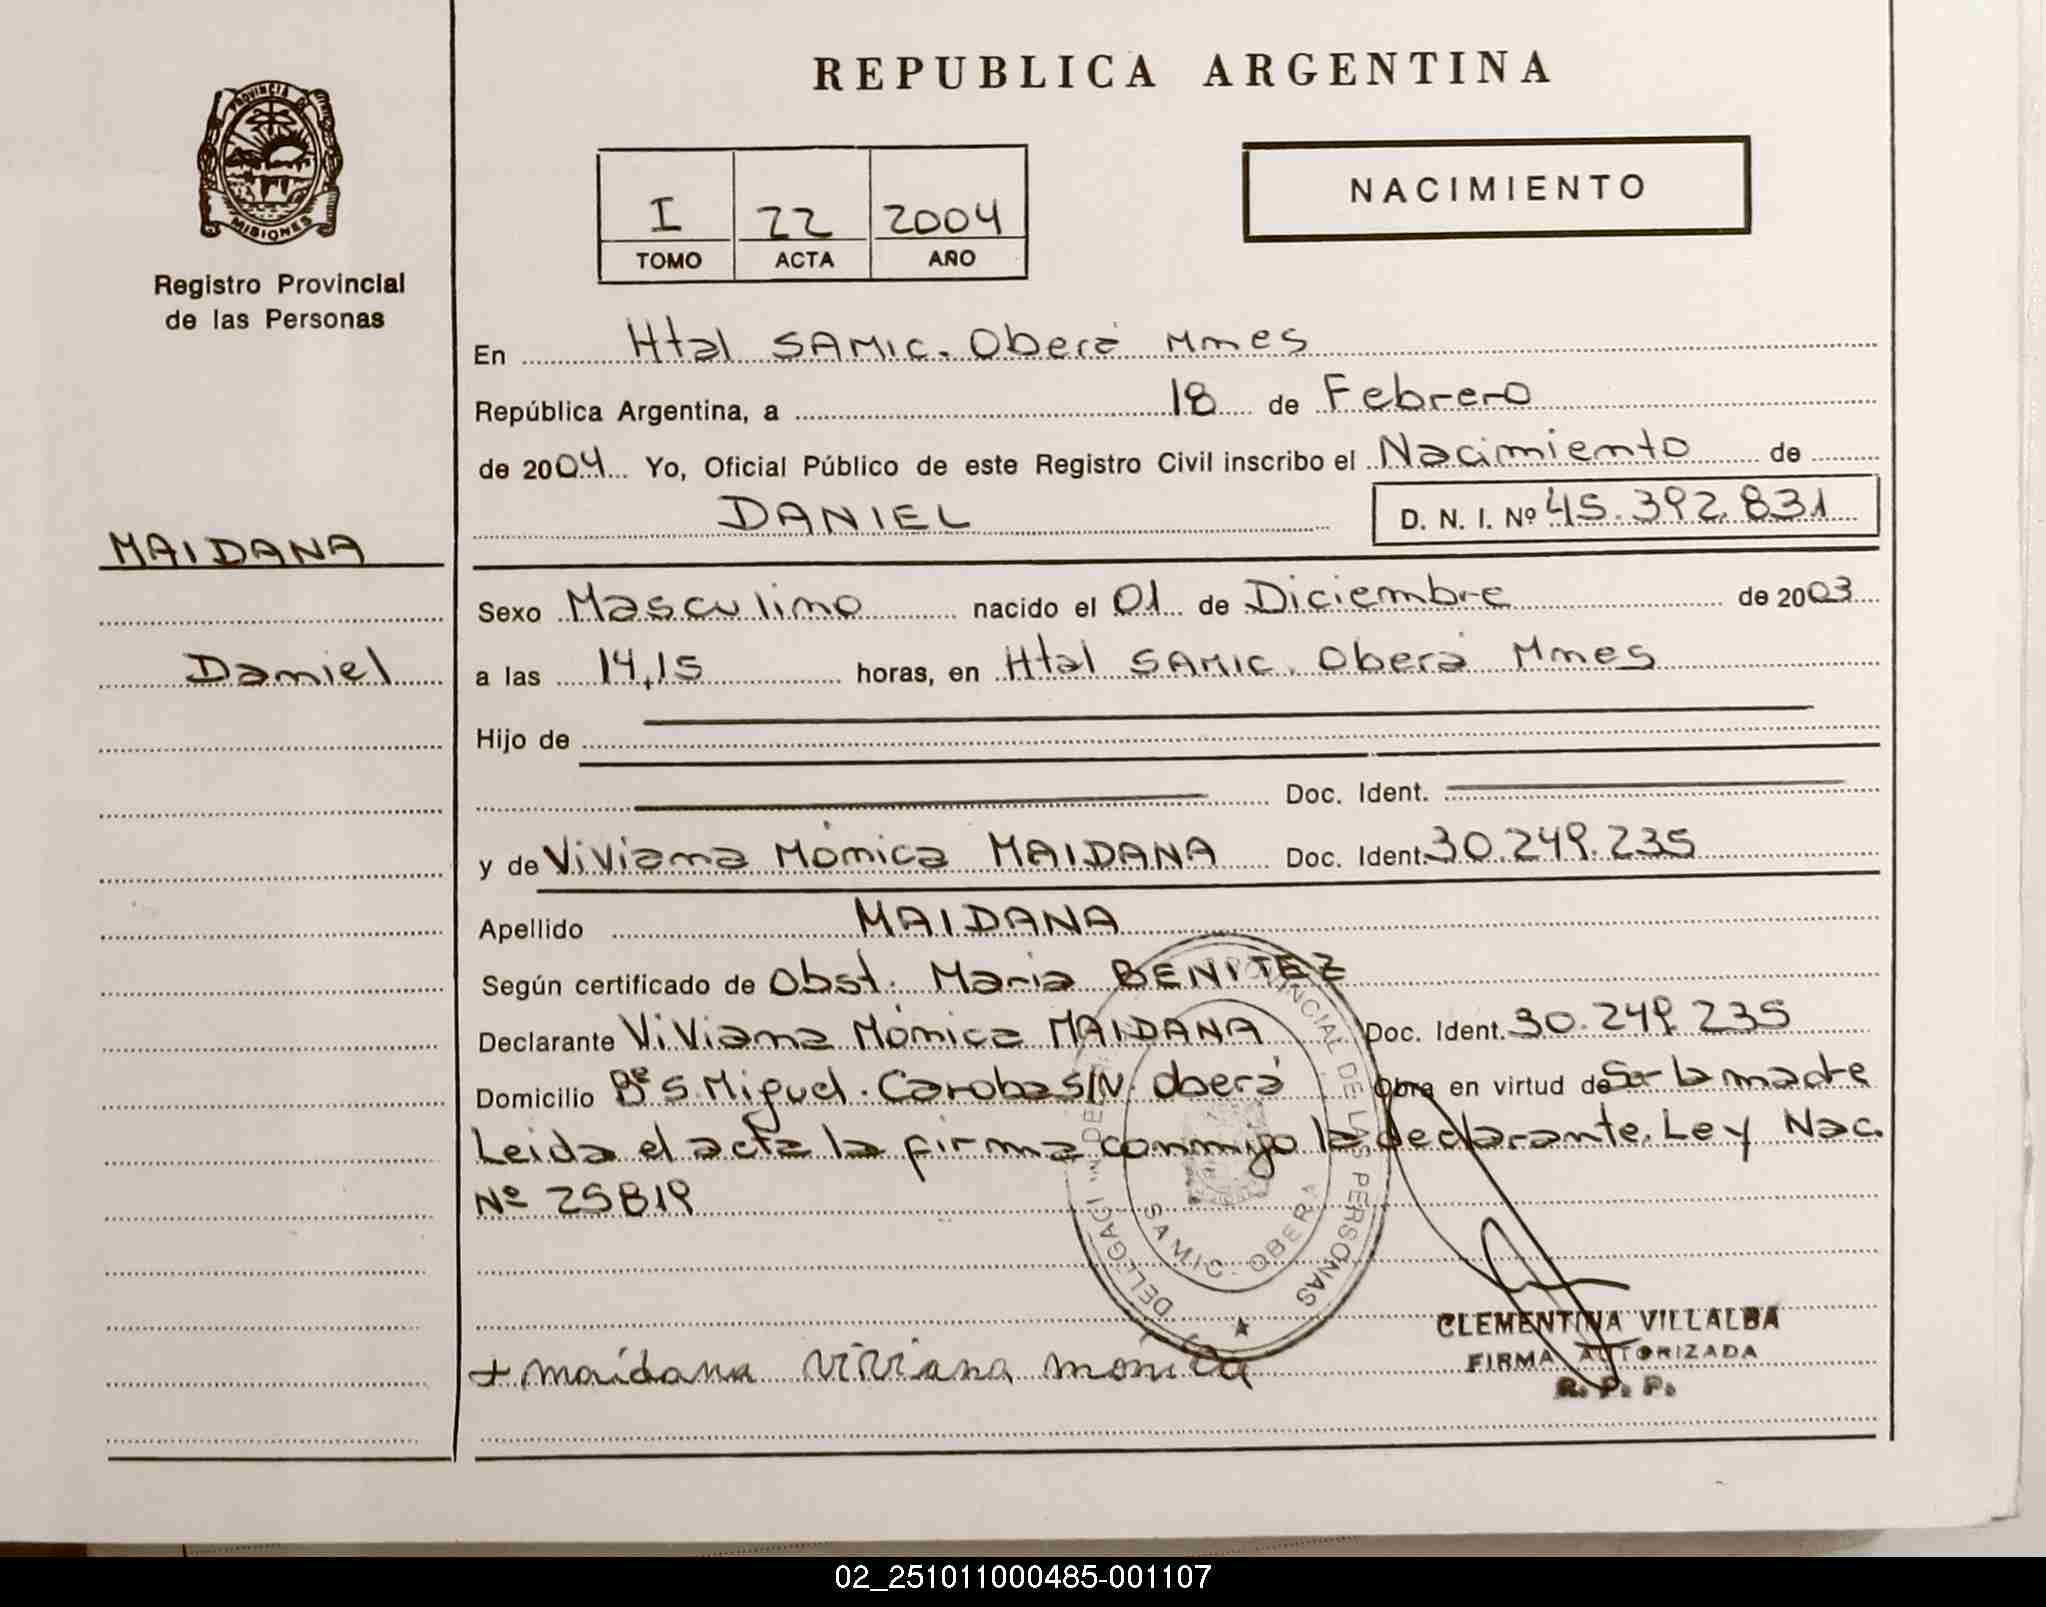 REPUBLICA ARGENTINA
PROVINCIA DE MISIONES
Registro Provincial
de las Personas
NACIMIENTO
I 22 2004
TOMO ACTA AÑO
En Htal SAMIC. Oberá Mnes
República Argentina, a 18 de Febrero
de 2004 Yo, Oficial Público de este Registro Civil inscribo el Nacimiento de
DANIEL D. N. I. Nº 45.392.831
MAIDANA
Daniel
Sexo Masculino nacido el 01 de Diciembre de 2003
a las 14,15 horas, en Htal SAMIC. Oberá Mnes
Hijo de
Doc. Ident.
y de Viviana Mónica MAIDANA Doc. Ident. 30.249.235
Apellido MAIDANA
Según certificado de Obst. Maria BENITEZ
Declarante Viviana Mónica MAIDANA Doc. Ident. 30.249.235
Domicilio Bº S. Miguel. Carobas S/N. Oberá Obra en virtud de Ser la madre
Leida el acta la firma conmigo la declarante. Ley Nac.
Nº 25819
PROVINCIAL DE LAS PERSONAS
SAMIC - OBERA
CLEMENTINA VILLALBA
FIRMA AUTORIZADA
R. P. P.
+ maidana viviana monica
02_251011000485-001107